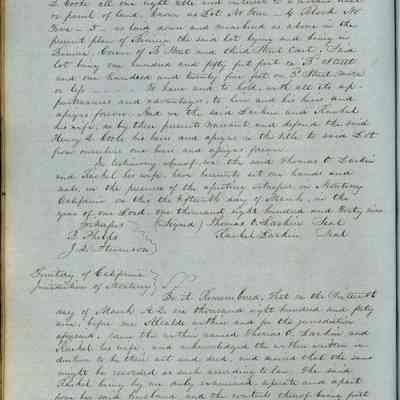 D. Cooke all our right title and interest to a certain lot
or parcel of land, known as Lot No Four - 4 Block No
Five - 5 - as laid down and numbered as above in the
present plan of Benicia the said lot lying and being in
Benicia, Corner of B Street and third Street East, Said
lot being one hundred and fifty feet front on B Street
and one hundred and twenty five feet on 3d Street more
or less - - - - - To have and to hold, with all its ap-
purtenances and advantages, to him and his heirs and
assigns forever. And we the said Larkin and Rachel
his wife, do by these presents warrant and defend the said
Henry D. Cooke his heirs and assigns in the title to said Lot
from ourselves our heirs and assigns forever.
In testimony whereof, we the said Thomas O. Larkin
and Rachel his wife, have hereunto set our hands and
seals, in the presence of the subscribing witnesses in Monterey
California on this the fifteenth day of March, in the
year of our Lord, one thousand eight hundred and forty nine
Witnesses (Signed) Thomas O. Larkin Seal
B. Phelps Rachel Larkin Seal
J. D. Stevenson
Territory of California
Jurisdiction of Monterey
Be it Remembered, that on the fifteenth
day of March A.D. one thousand eight hundred and forty
nine, before me Alcalde within and for the jurisdiction
aforesaid, came the within named Thomas O. Larkin and
Rachel his wife, and acknowledged the within written in-
denture to be their act and deed, and desired that the same
might be recorded as such according to law. The said
Rachel being by me duly examined, separate and apart
from her said husband and the contents thereof being first